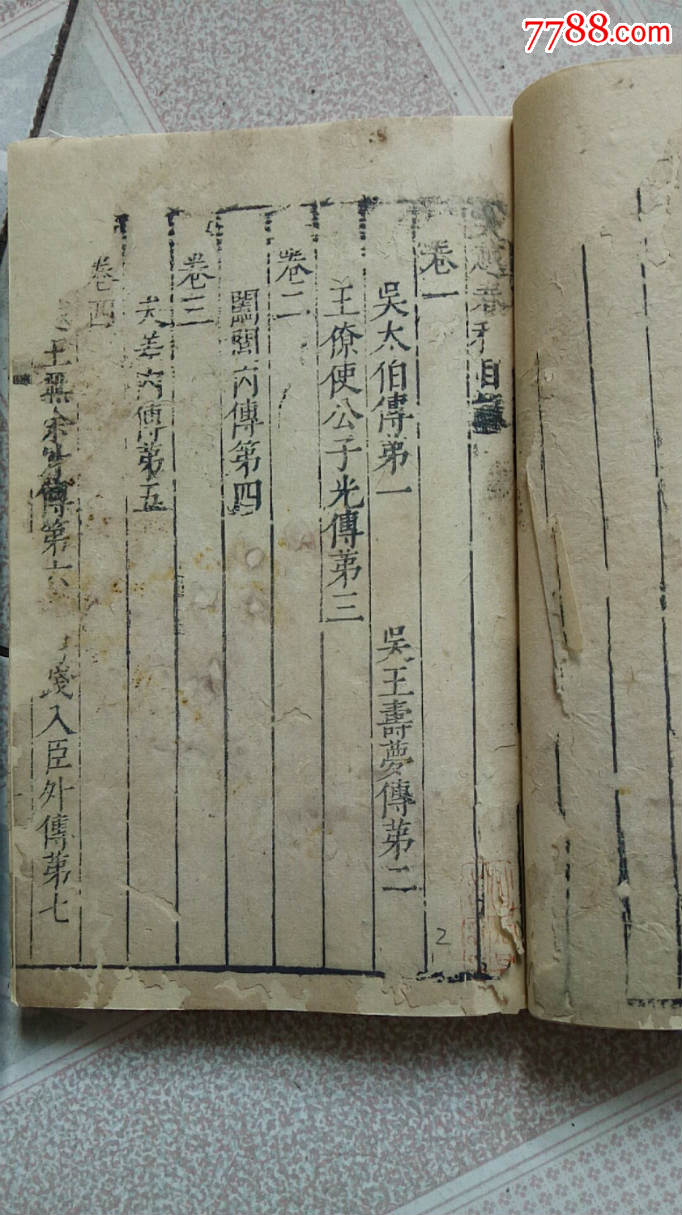 7788.com
春秋目
卷一
吳太伯傳第一 吳王壽夢傳第二
王僚使公子光傳第三
卷二
闔閭內傳第四
卷三
夫差內傳第五
卷四
王無余外傳第六 踐入臣外傳第七
2